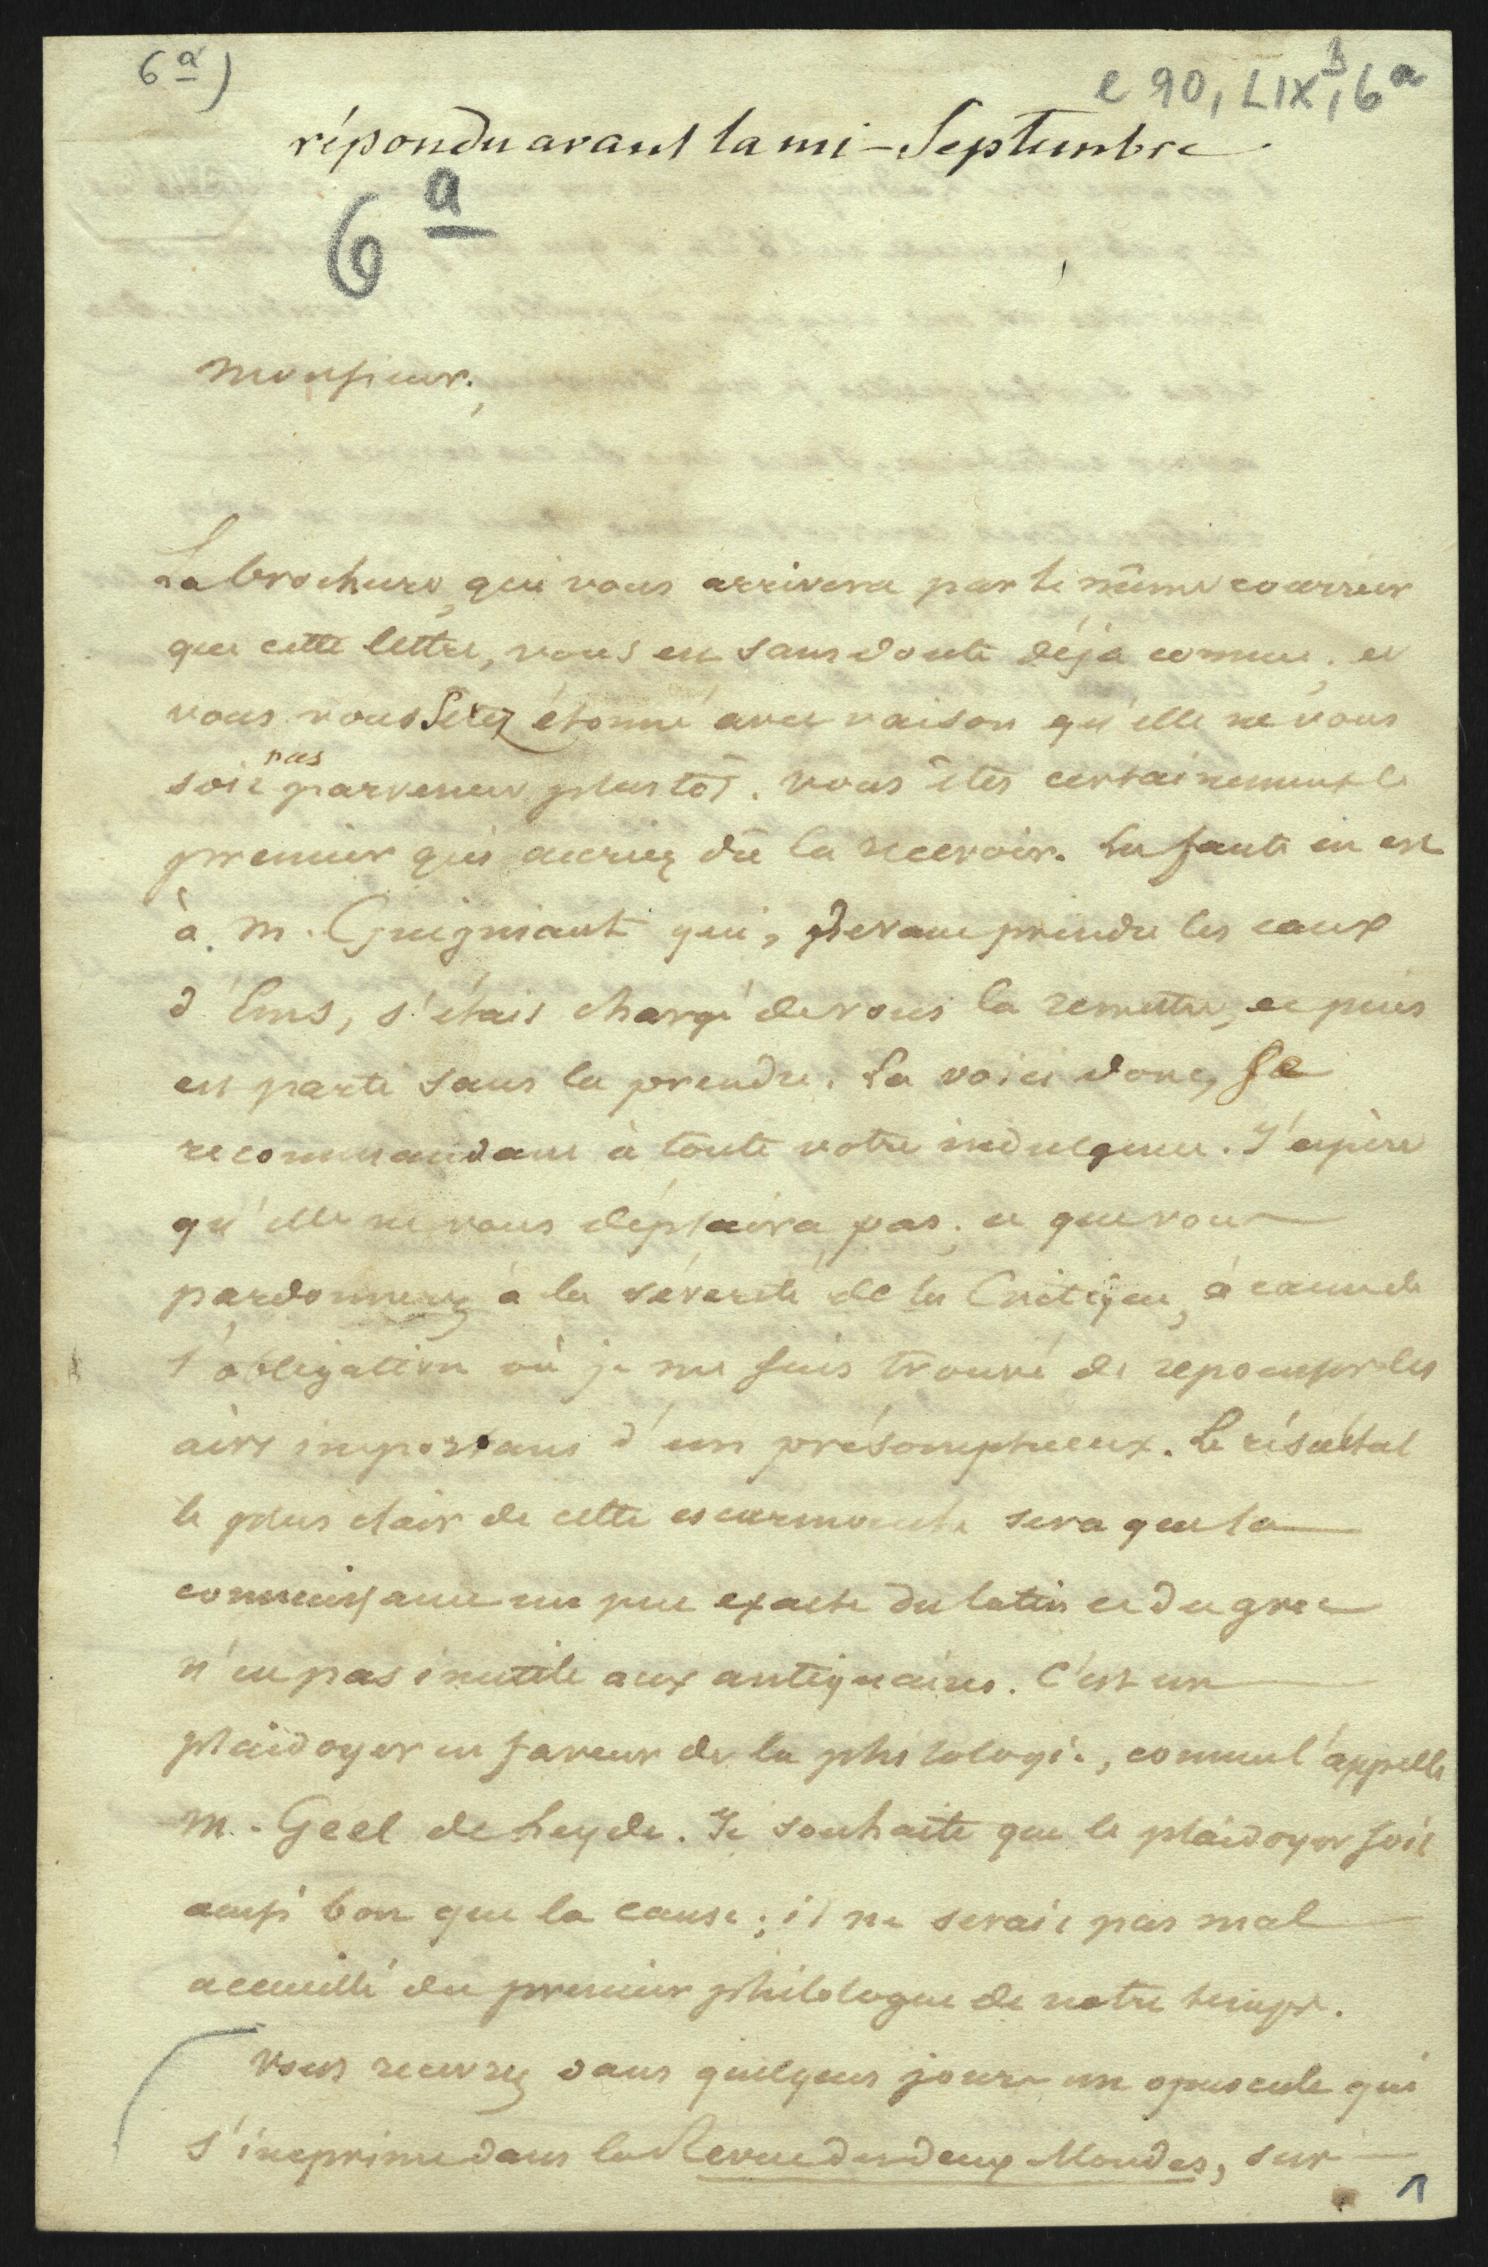 6a)
e 90, LIX1, 6a
répondu avant la mi-Septembre
6a
Monsieur,
La brochure, qui vous arrivera par le même courrier
que cette lettre, vous est sans doute déjà connue, et
vous vous serez étonné avec raison qu'elle ne vous
soit pas parvenue plustôt. Vous êtes certainement le
premier qui auriez dû la recevoir. La faute en est
à M. Guigniaut qui, devant prendre les eaux
d'Ems, s'était chargé de vous la remettre, et puis
est parti sans la prendre. La voici donc, se
recommandant à toute votre indulgence. J'espère
qu'elle ne vous déplaira pas, et que vous
pardonnerez à la sévérité de la Critique, à cause de
l'obligation où je me suis trouvé de repousser les
airs importans d'un présomptueux. Le résultat
le plus clair de cette escarmouche sera que la
connaissance un peu exacte du latin et du grec
n'est pas inutile aux antiquaires. C'est un
plaidoyer en faveur de la philologie, comme l'appelle
M. Geel de Leyde. Je souhaite que le plaidoyer soit
aussi bon que la cause; il ne serait pas mal
accueilli du premier philologue de notre temps.
Vous recevrez dans quelques jours un opuscule qui
s'imprime dans la Revue des deux Mondes, sur
1